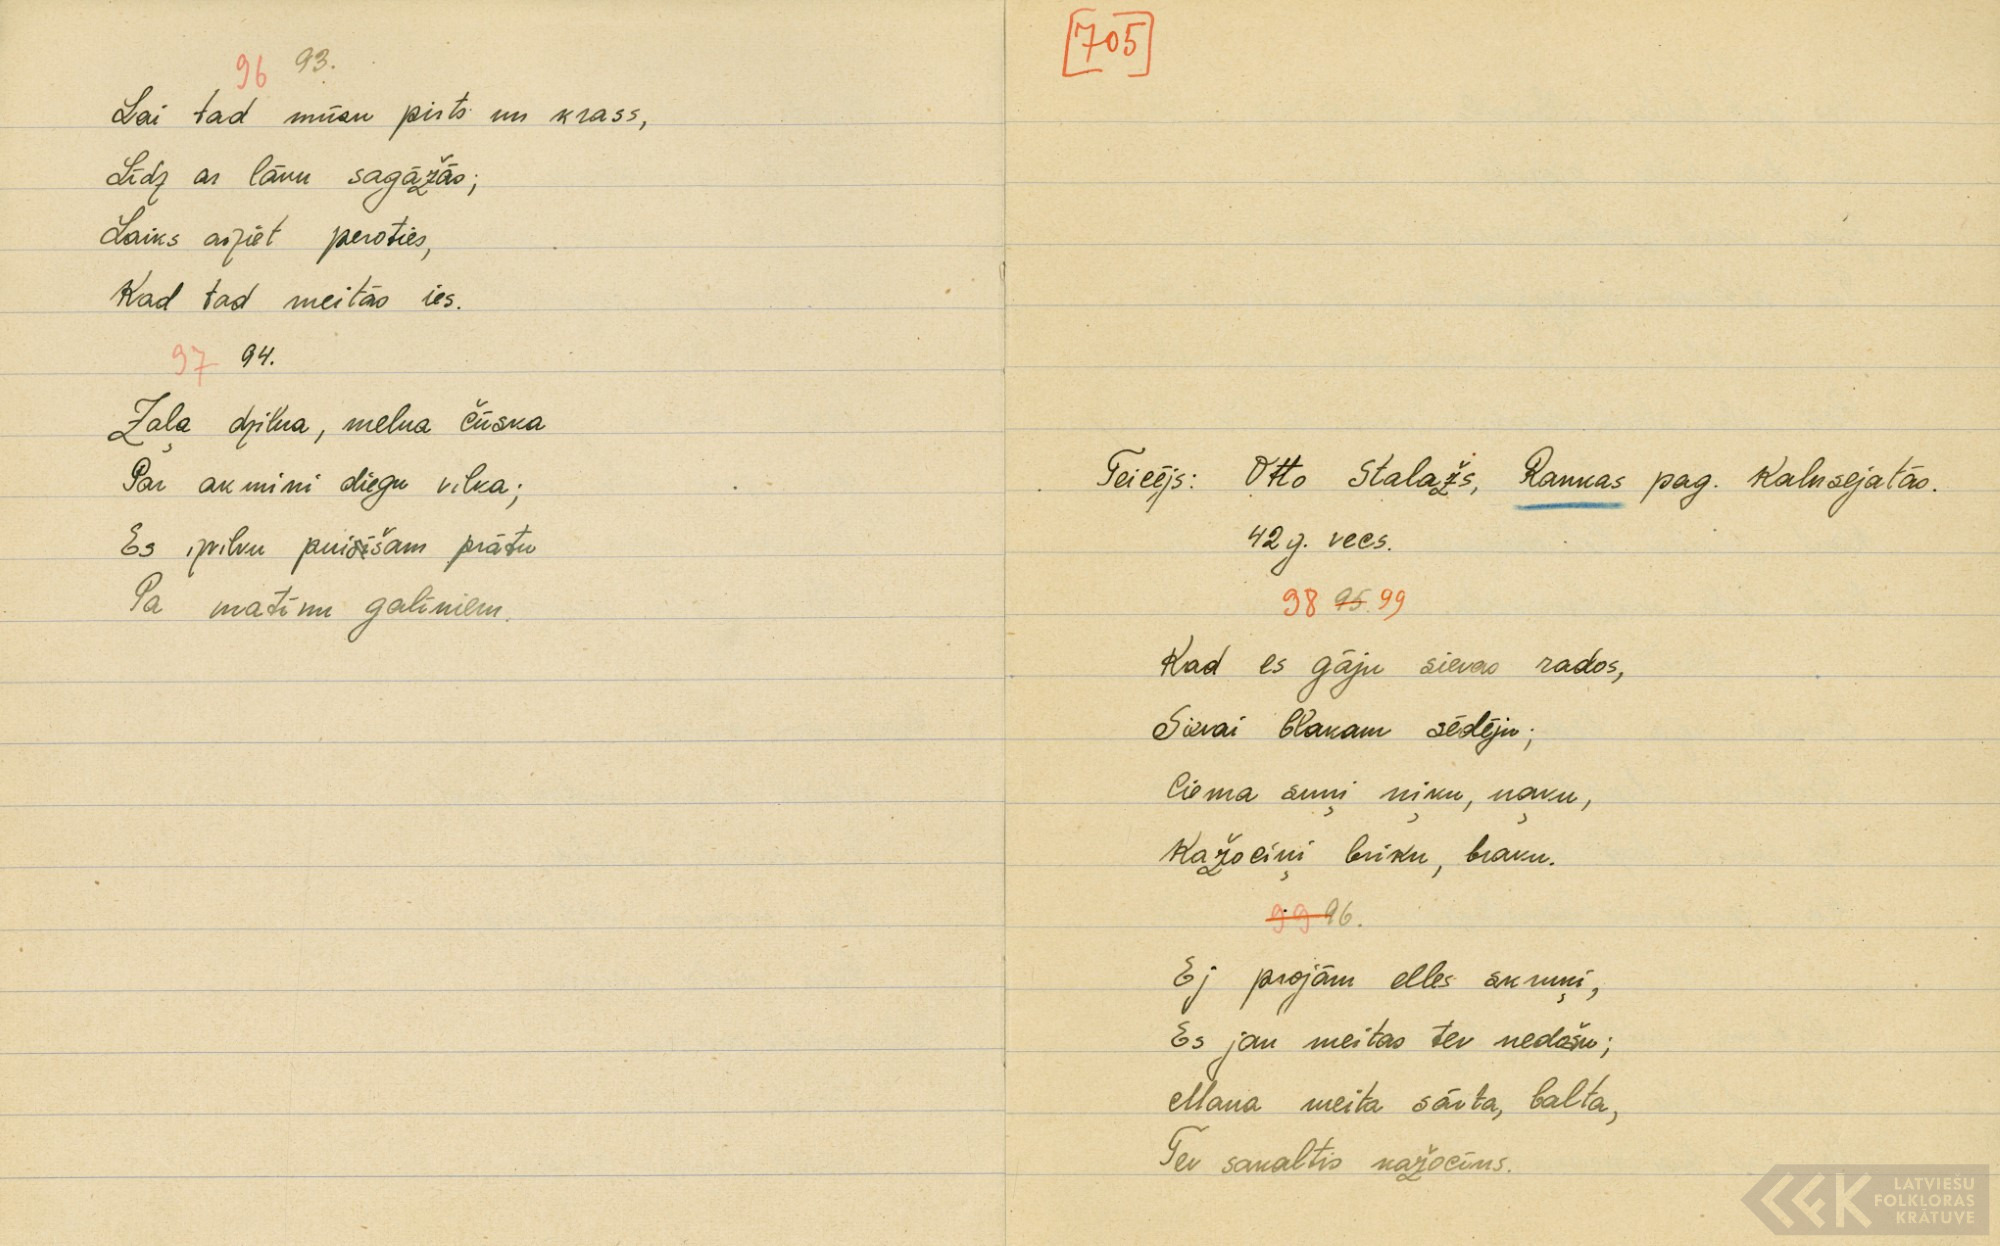 96 93.
Lai tad mūsu pirts un krass,
Līdz ar lāvu sagāžās;
Laiks aiziet peroties,
Kad tad meitās ies.
97 94.
Zaļa dzilna, melna čūska
Par akmini diegu vilka;
Es ipilvu puisišam prātu
Pa matīnu galīniem.
[705]
Teicējs: Otto Stalažs, Rankas pag. Kalnsejatās.
42 g. vecs.
98 95. 99
Kad es gāju sievas rados,
Sievai blakam sēdēju;
Ciema suņi ņiku, ņaku,
Kažociņi briku, braku.
99 96.
Ej projām elles skruņi,
Es jau meitas tev nedošu;
Mana meita sārta, balta,
Tev sakaltis kažocīns.
LATVIEŠU
FOLKLORAS
KRĀTUVE